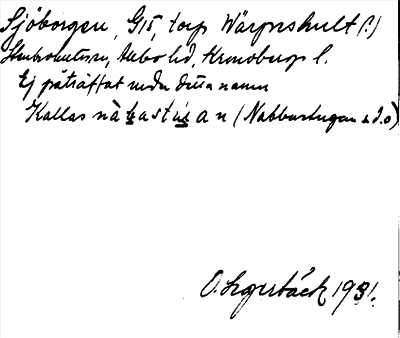 Sjöborgen, G15, torp Wärpnshult (?)
Stenbrohult sn, Allbo hd, Kronobergs l.
Ej påträffat under detta namn
Kallas nàbastu̇gan (Nabbastugan s.d.o)
O. Lagerbäck 1931.